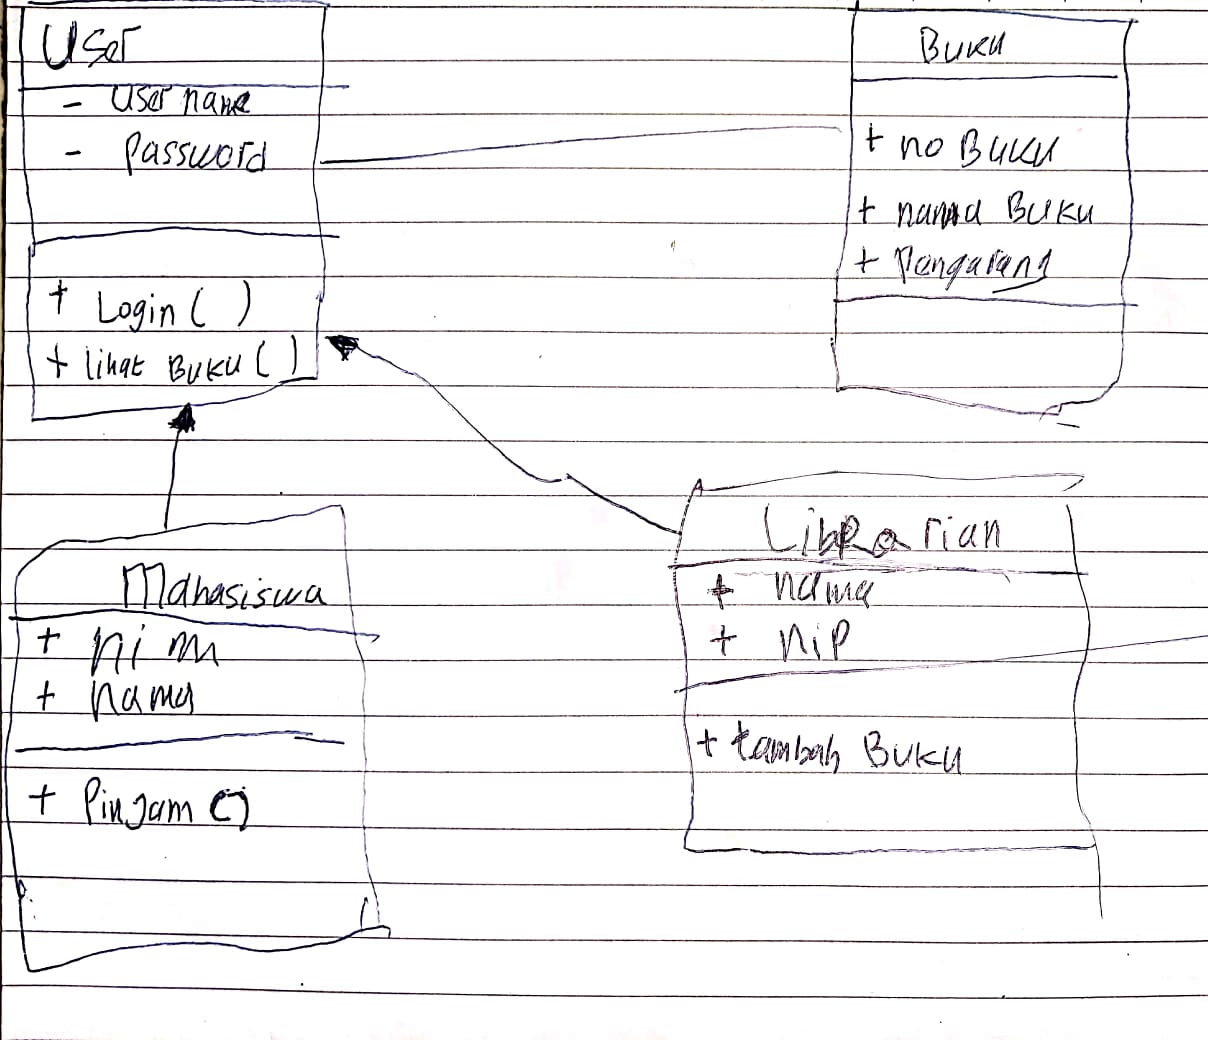 User
- User name
- Password
+ Login ( )
+ lihat Buku ( )
Buku
+ no Buku
+ nama Buku
+ Pengarang
Mahasiswa
+ nim
+ nama
+ Pinjam ()
Librarian
+ nama
+ nip
+ tambah Buku